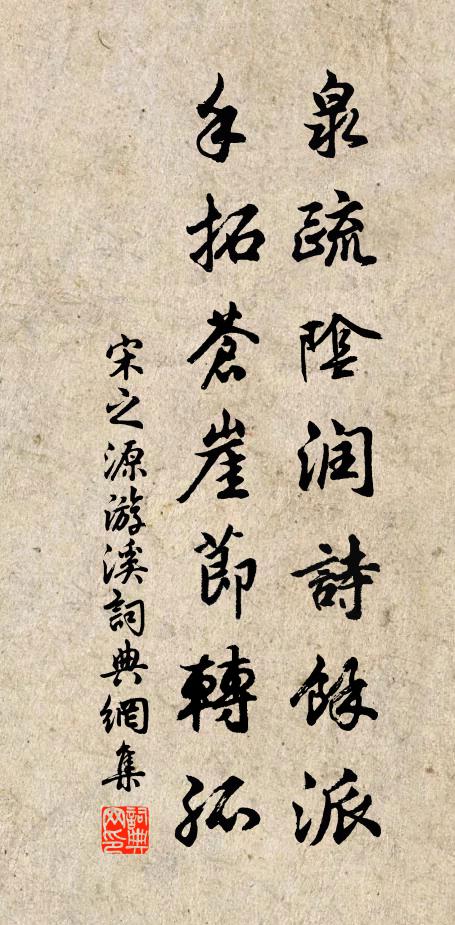 泉疏陰润詩餘派
手拓蒼崖節轉孤
宋之源游溪詞典網集
詞典网印